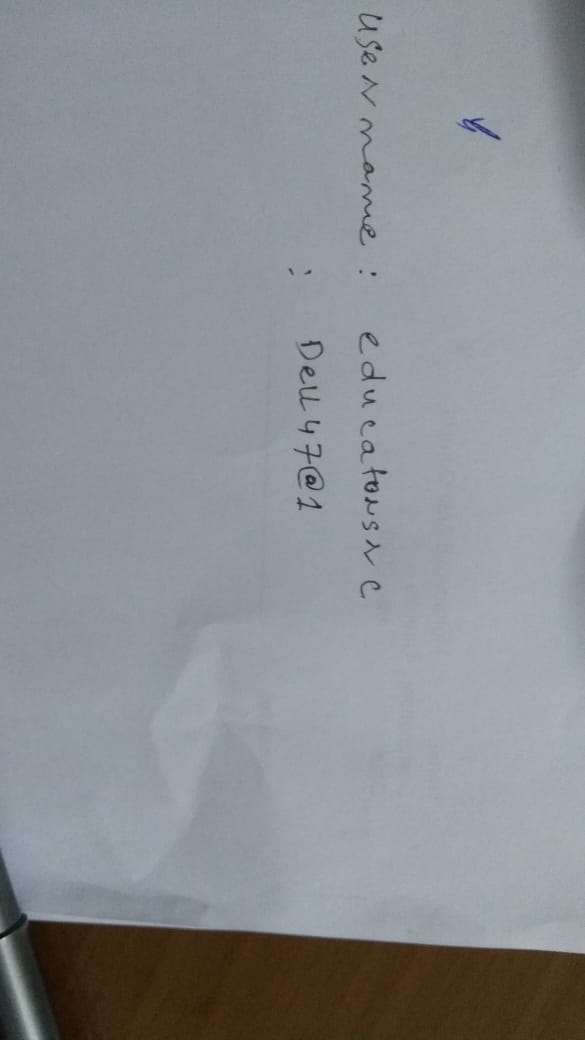 username: educatorsrc
: Dell47@1